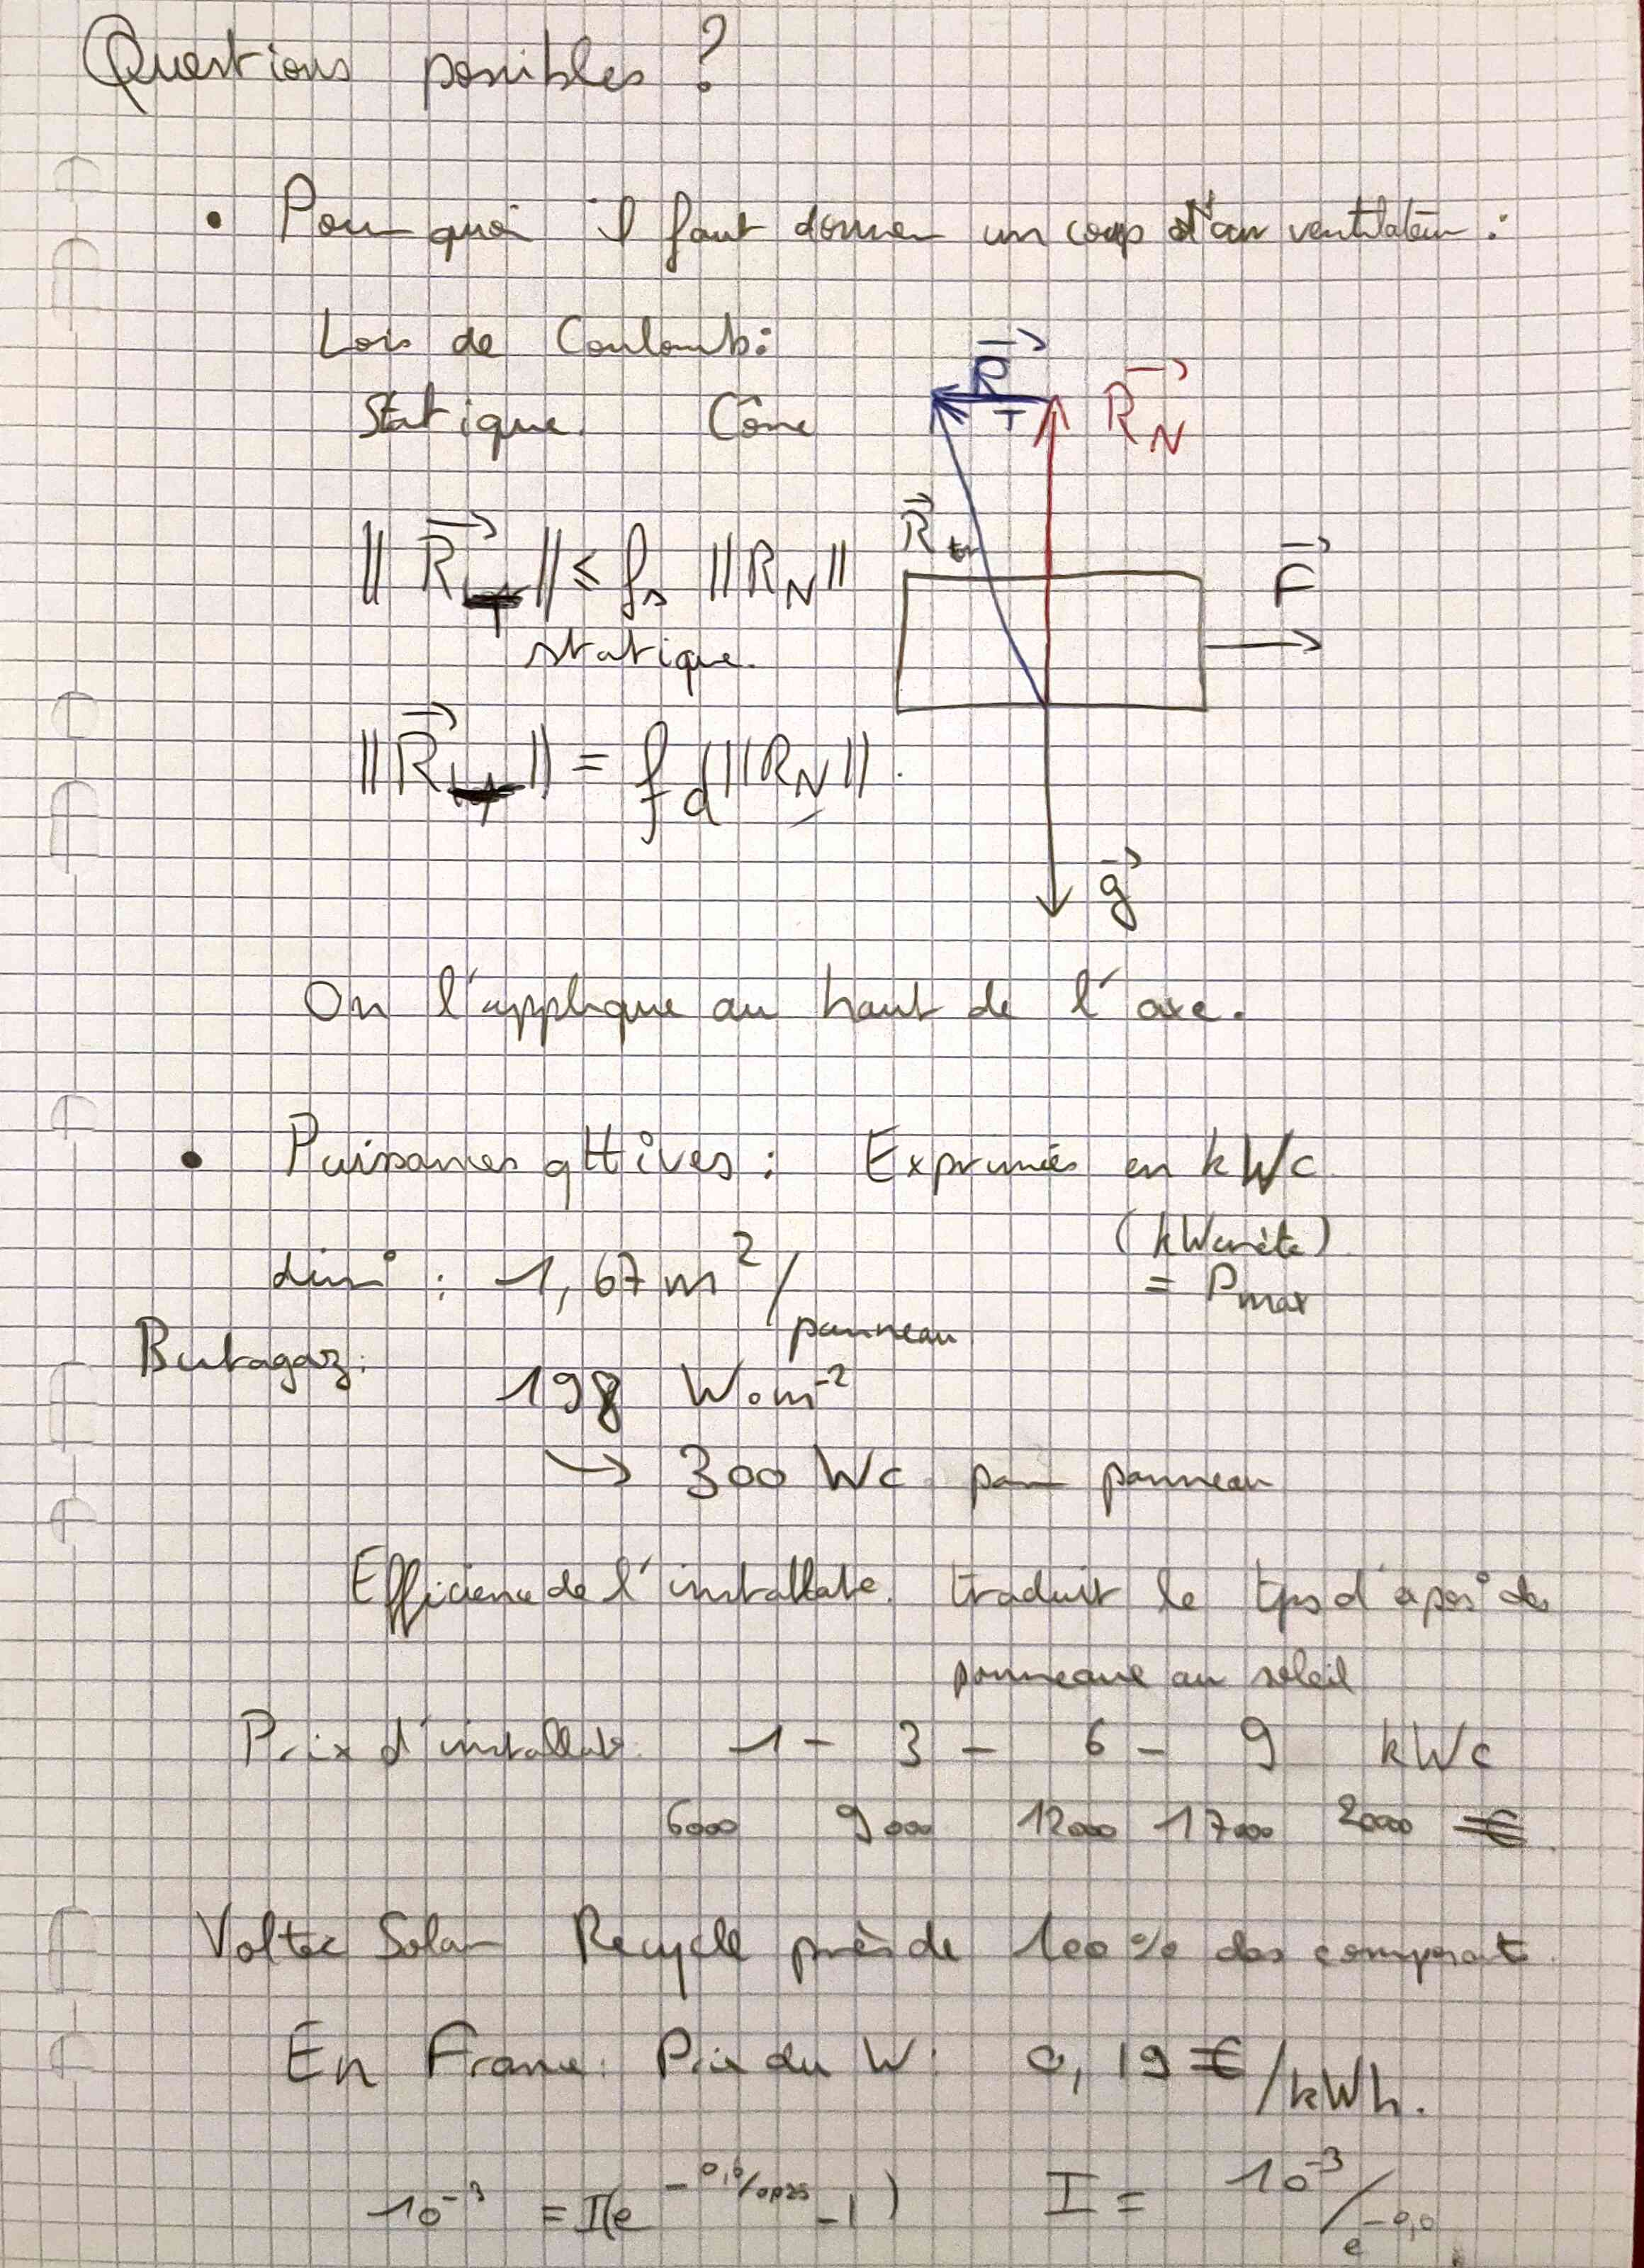 Questions possibles ?
• Pourquoi il faut donner un coup au ventilateur :
Lois de Coulomb :
Statique. Cône
R⃗_T R⃗_N
‖R⃗_T‖ ≤ f_s ‖R_N‖
statique.
R⃗_tr F⃗
‖R⃗_T‖ = f_d ‖R_N‖.
g⃗
On l'applique au haut de l'axe.
• Puissances : Exprimées en kWc
(kWcrète)
= P_max
dim° : 1,67 m²/panneau
Butagaz :
198 W.m⁻²
→ 300 Wc par panneau
Efficience de l'installat°. traduit le tps d'expos° des
panneaux au soleil
Prix d'installat°. 1 - 3 - 6 - 9 kWc
6000 9000 12000 17000 2000 €
Voltec Solar Recycle près de 100% des composants.
En France : Prix du W : 0,19 €/kWh.
10⁻³ = I(e -1) I = 10⁻³/